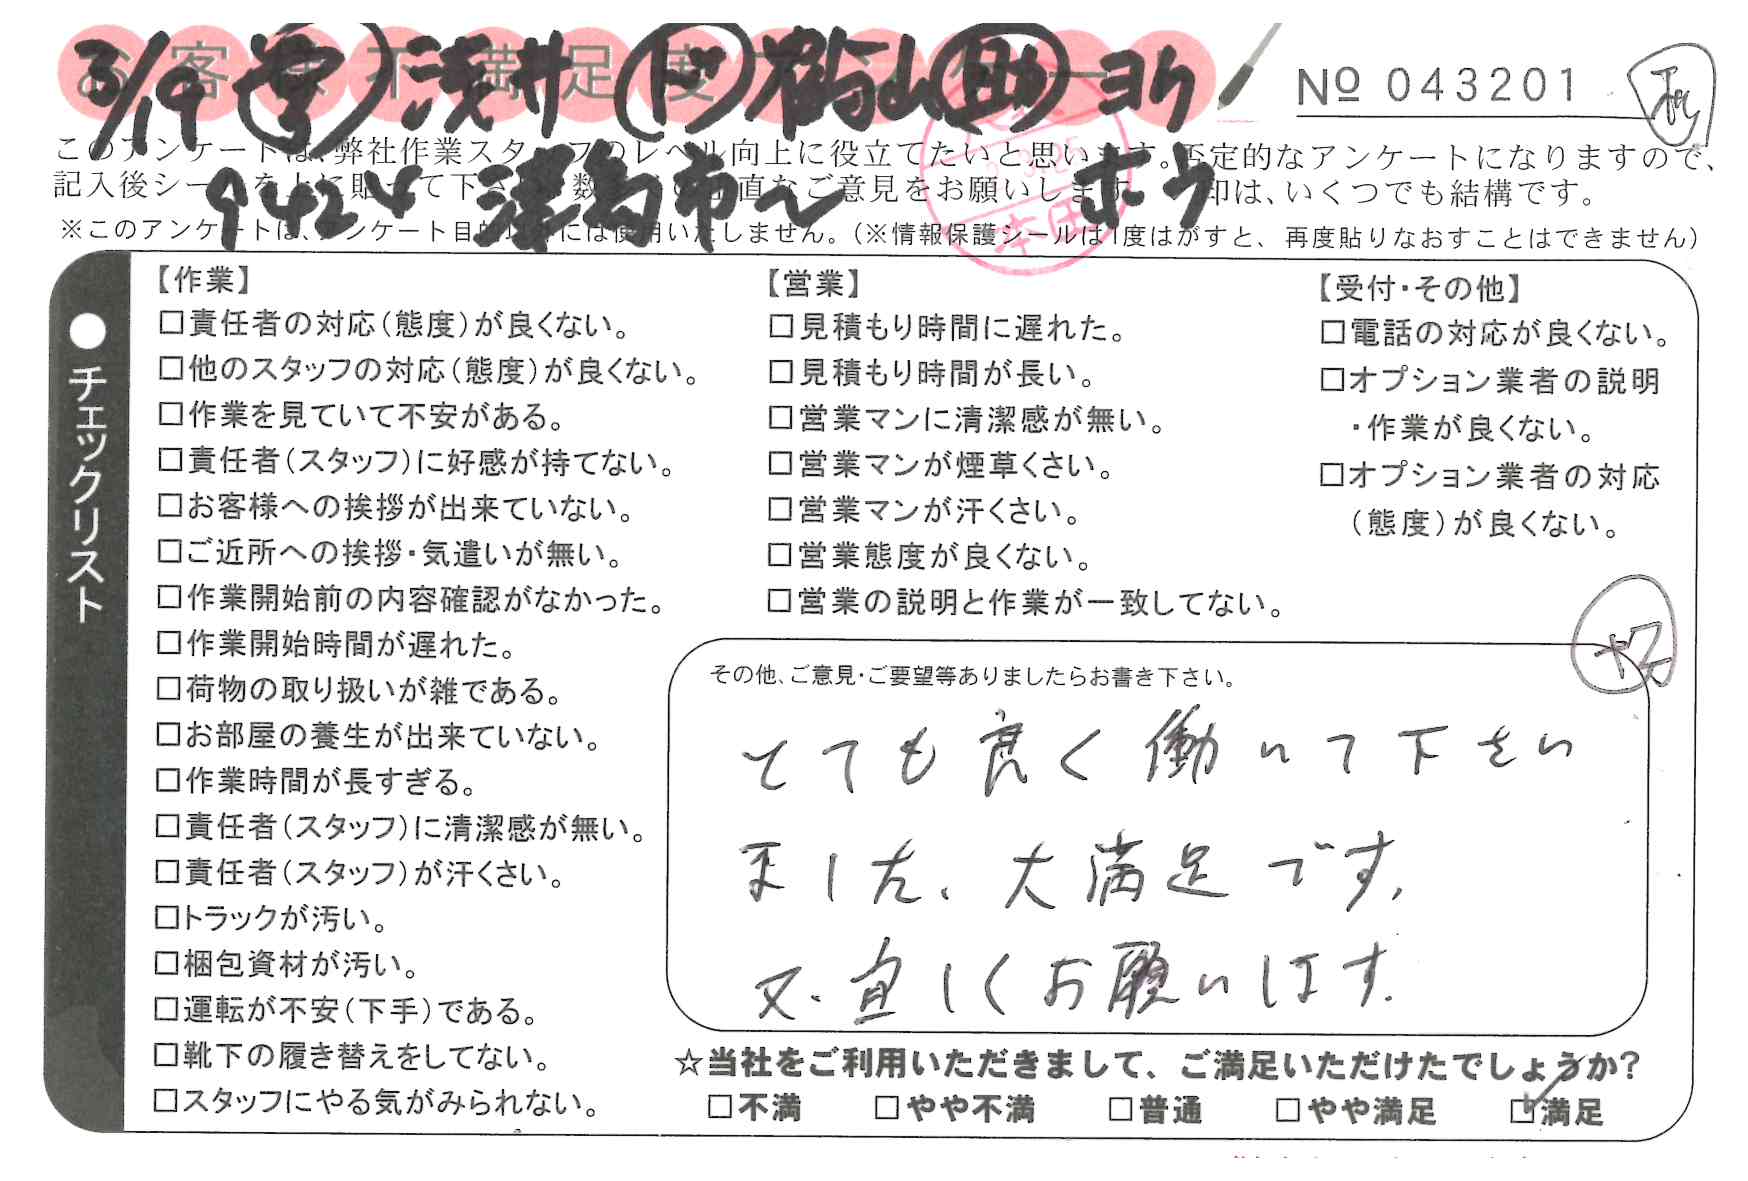 お客様不満足度アンケート
3/19 営 浅井 ド 樹山 助 ヨリ
No 043201
このアンケートは、弊社作業スタッフのレベル向上に役立てたいと思います。否定的なアンケートになりますので、
記入後シールを上に貼って下さい。数 の 直なご意見をお願いします 印は、いくつでも結構です。
9424 津島市〜 ホウ
※このアンケートは、アンケート目的以外には使用いたしません。(※情報保護シールは1度はがすと、再度貼りなおすことはできません)
本田
●チェックリスト
【作業】
□責任者の対応(態度)が良くない。
□他のスタッフの対応(態度)が良くない。
□作業を見ていて不安がある。
□責任者(スタッフ)に好感が持てない。
□お客様への挨拶が出来ていない。
□ご近所への挨拶・気遣いが無い。
□作業開始前の内容確認がなかった。
□作業開始時間が遅れた。
□荷物の取り扱いが雑である。
□お部屋の養生が出来ていない。
□作業時間が長すぎる。
□責任者(スタッフ)に清潔感が無い。
□責任者(スタッフ)が汗くさい。
□トラックが汚い。
□梱包資材が汚い。
□運転が不安(下手)である。
□靴下の履き替えをしてない。
□スタッフにやる気がみられない。
【営業】
□見積もり時間に遅れた。
□見積もり時間が長い。
□営業マンに清潔感が無い。
□営業マンが煙草くさい。
□営業マンが汗くさい。
□営業態度が良くない。
□営業の説明と作業が一致してない。
【受付・その他】
□電話の対応が良くない。
□オプション業者の説明
・作業が良くない。
□オプション業者の対応
(態度)が良くない。
その他、ご意見・ご要望等ありましたらお書き下さい。
とても良く働いて下さい
ました、大満足です,
又、宜しくお願いします.
☆当社をご利用いただきまして、ご満足いただけたでしょうか?
□不満 □やや不満 □普通 □やや満足 ☑満足